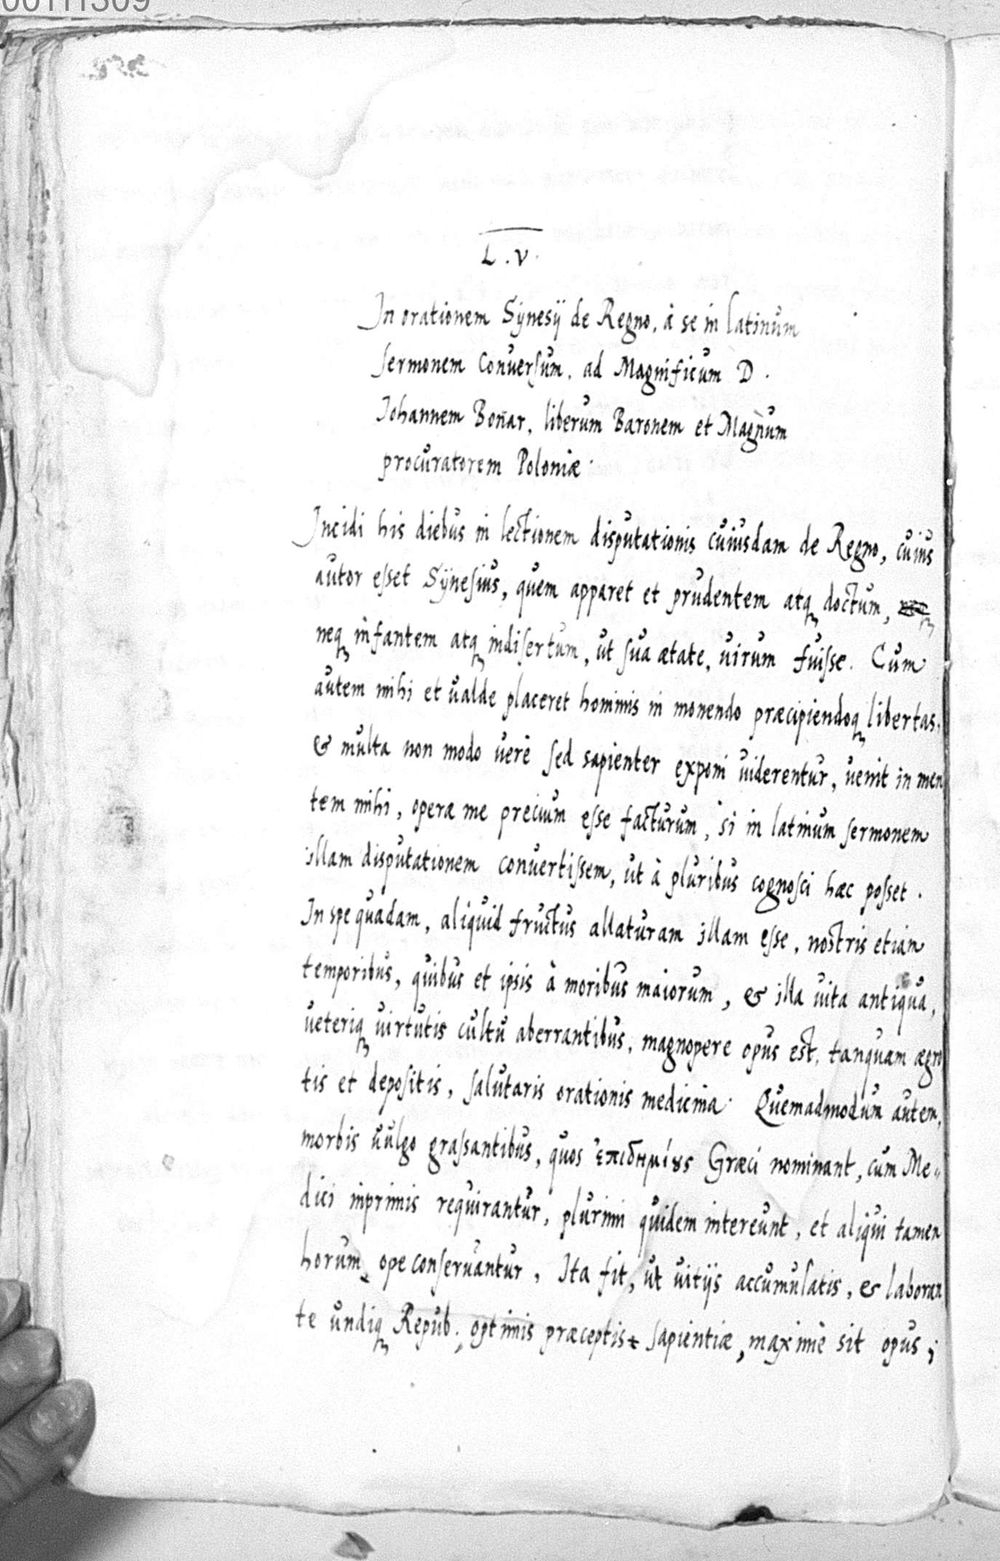 00111309
L.V.
In orationem Sÿnesÿ de Regno, à se in latinum
sermonem conuersum, ad Magnificum D.
Johannem Bonar, liberum Baronem et Magnum
procuratorem Poloniæ.
Incidi his diebus in lectionem disputationis cuiusdam de Regno, cuius
autor esset Sÿnesius, quem apparet et prudentem atq doctum,
neq infantem atq indisertum, ut sua ætate, uirum fuisse. Cum
autem mihi et ualde placeret hominis in monendo præcipiendoq libertas,
& multa non modo verè sed sapienter exponi uiderentur, uenit in men
tem mihi, operæ me precium esse facturum, si in latinum sermonem
illam disputationem conuertissem, ut à pluribus cognosci hæc posset.
In spe quadam, aliquid fructus allaturam illam esse, nostris etiam
temporibus, quibus et ipsis à moribus maiorum, & illa uita antiqua,
ueteriq uirtutis cultu aberrantibus, magnopere opus est, tanquam ægro
tis et depositis, salutaris orationis medicina. Quemadmodum autem,
morbis uulgo grassantibus, quos ἐπιδημίους Græci nominant, cum Me
dici inprimis requirantur, plurimi quidem intereunt, et aliqui tamen
horum ope conseruantur, Ita fit, ut uitijs accumulatis, & laboran
te undiq Repub. optimis præceptis sapientiæ, maximè sit opus;